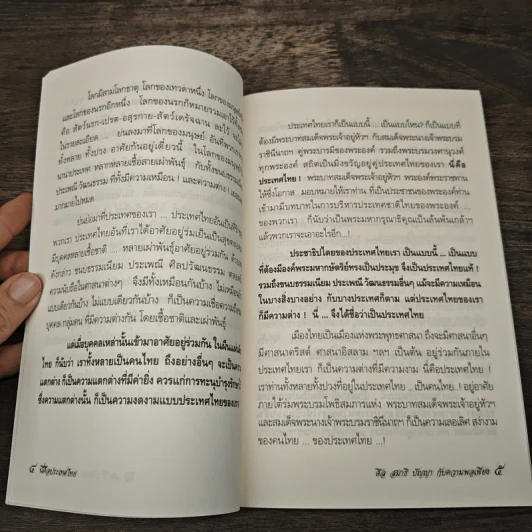 โลกมีสามโลกธาตุ โลกของเทวดาหนึ่ง โลกของมนุษย์
และโลกของนรกอีกหนึ่ง โลกของนรกก็หมายรวมเอาไว้
คือ สัตว์นรก-เปรต-อสุรกาย-สัตว์เดรัจฉาน ละไว้
ในรายละเอียด ... ย่นลงมาที่โลกของมนุษย์ อันที่พวกเรา
ทั้งหลาย ทั้งปวง อาศัยกันอยู่เดี๋ยวนี้ ... ในโลกของมนุษย์
นานาประเทศ หลากหลายเชื้อสายเผ่าพันธุ์ กับทั้งขนบธรรมเนียม
ประเพณี วัฒนธรรม ที่ทั้งมีความเหมือน ! และความต่าง !
มากมายไปหมด
ย่นย่อมาที่ประเทศของเรา ... ประเทศไทยอันเป็นที่
พวกเรา ประเทศไทยอันที่เราได้อาศัยอยู่ร่มเย็นเป็นสุข
มีบุคคลหลายเชื้อชาติ ... หลายเผ่าพันธุ์อาศัยอยู่ร่วมกัน
ดังกล่าว ขนบธรรมเนียม ประเพณี ศิลปวัฒนธรรม ตลอด
ความนับถือในศาสนาต่างๆ จึงมีทั้งเหมือนกันบ้าง ไม่เหมือน
แบบเดียวกันบ้าง ไม่แบบเดียวกันบ้าง ก็เป็นความเชื่อความ
บุคคล กลุ่มคน ที่มีความต่างกัน โดยเชื้อชาติและเผ่าพันธุ์
แต่เมื่อบุคคลเหล่านั้นเข้ามาอาศัยอยู่ร่วมกัน ในผืนแผ่นดิน
ไทย ก็นับว่า เราทั้งหลายเป็นคนไทย ถึงอย่างอื่นๆ จะเป็นความ
แตกต่าง ก็เป็นความแตกต่างที่มีค่ายิ่ง ควรแก่การทะนุบำรุงรักษา
ซึ่งความแตกต่างนั้น ก็เป็นความงดงามแบบประเทศไทยของเรา
๔ นี่คือประเทศไทย
ประเทศไทยเราก็เป็นแบบนี้ ... เป็นแบบไหน? ก็เป็นแบบที่
ต้องมีพระบาทสมเด็จพระเจ้าอยู่หัวฯ กับสมเด็จพระนางเจ้าพระบรม
ราชินีนาถฯ คู่พระบารมีของพระองค์ รวมถึงพระบรมวงศานุวงศ์
ทุกพระองค์ สถิตเป็นมิ่งขวัญอยู่คู่ประเทศไทยของเรา นี่คือ
ประเทศไทย ! พระบาทสมเด็จพระเจ้าอยู่หัวฯ พระองค์พระราชทาน
ให้ซึ่งโอกาส มอบหมายให้เราท่าน ที่เป็นประชาชนของพระองค์ท่าน
เข้ามามีบทบาทในการบริหารประเทศชาติไทยของพระองค์ ...
ของพวกเรา ... ก็นับว่าเป็นพระมหากรุณาธิคุณเป็นล้นพ้นเกล้าฯ
แล้วพวกเราจะเอาอะไรอีก...!
ประชาธิปไตยของประเทศไทยเรา เป็นแบบนี้ ... เป็นแบบ
ที่ต้องมีองค์พระมหากษัตริย์ทรงเป็นประมุข จึงเป็นประเทศไทยแท้ !
รวมถึงขนบธรรมเนียม ประเพณี วัฒนธรรมอื่นๆ แม้จะมีความเหมือน
ในบางสิ่งบางอย่าง กับบางประเทศก็ตาม แต่ประเทศไทยของเรา
ก็มีความต่าง ! นี่ ... จึงได้ชื่อว่าเป็นประเทศไทย
เมืองไทยเป็นเมืองแห่งพระพุทธศาสนา ถึงจะมีศาสนาอื่นๆ
มีศาสนาคริสต์ ศาสนาอิสลาม ฯลฯ เป็นต้น อยู่ร่วมกันภายใน
ประเทศไทยเรา ก็เป็นความต่างที่มีความงาม นี่คือประเทศไทย !
เราท่านทั้งหลายทั้งปวงที่อยู่ในประเทศไทย .. เป็นคนไทย...! อยู่อาศัย
ภายใต้ร่มพระบรมโพธิสมภารแห่ง พระบาทสมเด็จพระเจ้าอยู่หัวฯ
และสมเด็จพระนางเจ้าพระบรมราชินีนาถฯ ก็เป็นความเลอเลิศ สง่างาม
ของคนไทย ... ของประเทศไทย ...!
ศีล สมาธิ ปัญญา กับความพอเพียง ๕